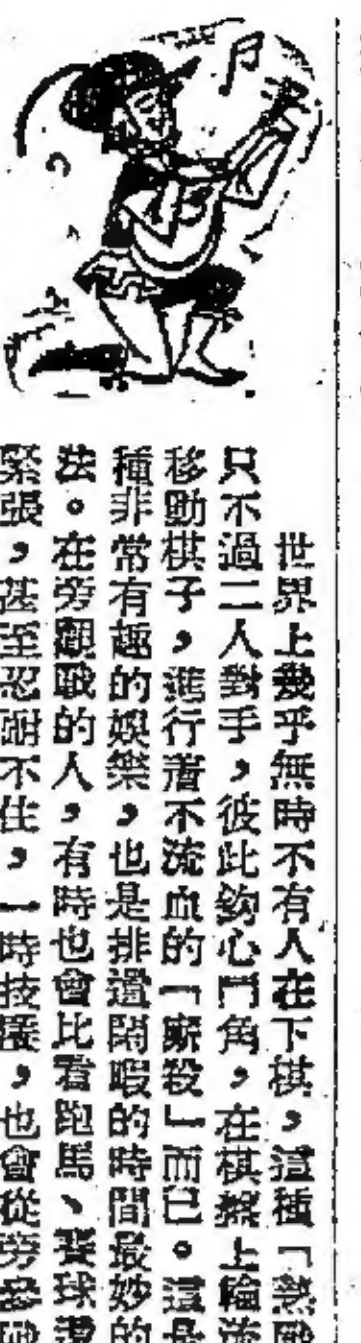 世界上幾乎無時不有人在下棋,這種「熱戰
只不過二人對手,彼此鈎心鬥角,在棋盤上輪流
移動棋子,進行着不流血的「廝殺」而已。這是
種非常有趣的娛樂,也是排遣閒暇的時間最妙的
法。在旁觀戰的人,有時也會比看跑馬、賽球還
緊張,甚至忍耐不住,一時技癢,也會從旁參戰